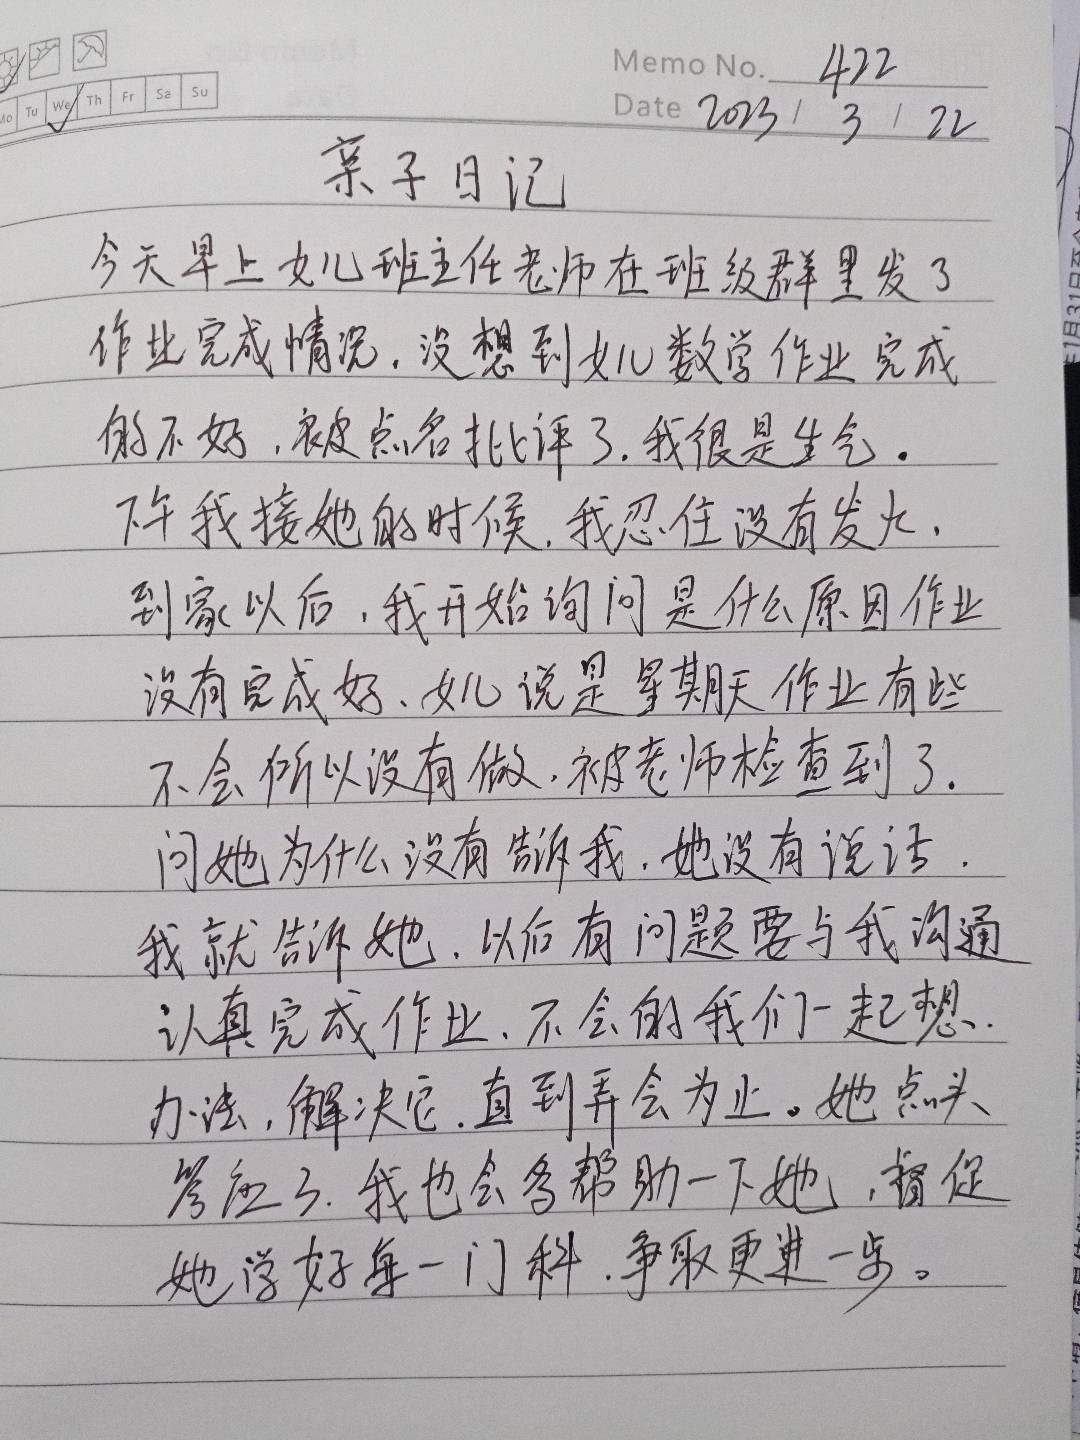 Memo No. 422
Mo Tu We Th Fr Sa Su
Date 2023 / 3 / 22
亲子日记
今天早上女儿班主任老师在班级群里发了
作业完成情况,没想到女儿数学作业完成
的不好,被点名批评了.我很是生气。
下午我接她的时候,我忍住没有发火,
到家以后,我开始询问是什么原因作业
没有完成好、女儿说是星期天作业有些
不会所以没有做,被老师检查到了.
问她为什么没有告诉我,她没有说话.
我就告诉她,以后有问题要与我沟通
认真完成作业、不会的我们一起想、
办法,解决它,直到弄会为止。她点头
答应了.我也会多帮助一下她,督促
她学好每一门科,争取更进一步。